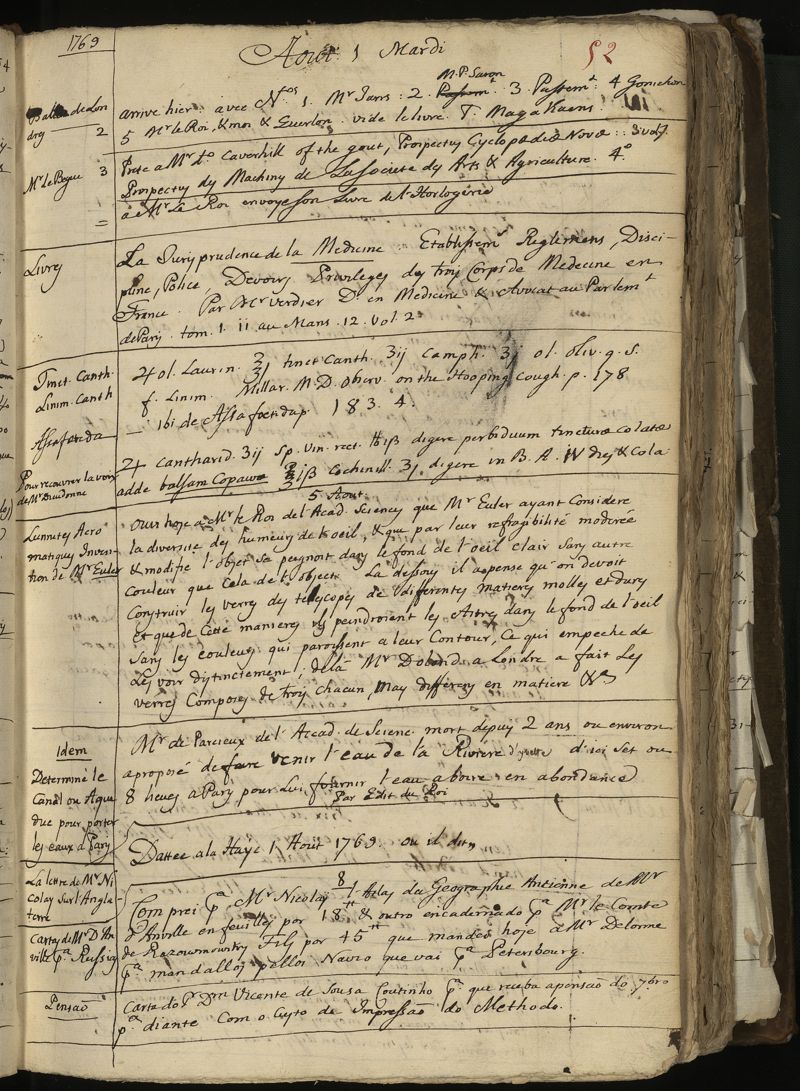 1769
Aout 1 Mardi
52
Ballon de Lon
dres 2
Mr P. Saron
arrive hier : avec Nos 1. Mr Jans : 2. Passemt : 3. Passemt 4 Gonichon
5 Mr le Roi, & moi & Guerlon. vide le livre T. Magalhaens.
Mr le Begue 3
Prete a Mr do Caverhill of the gout, Prospectus Cyclopædiæ Novæ :: 3 vol
Prospectus des Machines de La societe des Arts & Agriculture. 4o
=
a Mr Le Roi envoye son Livre de l'Horlogerie
Livres
La Jurisprudence de la Medicine : Etablissemt Reglemens, Disci-
pline, Police, Devoirs Privileges des trois Corps de Medecine en
France. Par Mr Verdier D. en Medicine & Avocat au Parlemt
de Paris. tom. 1. 11 au Mans. 12. vol 2
Tinct. Canth.
Linim. Canth
♃ ol. Laurin. ℥j tinct Canth. ʒij Camph. ʒj ol. oliv. q. s.
f. Linim. Millar. M.D. Observ. on the Hooping Cough. p. 178
Assafoetida
— ibi de Assafoetida p 183. 4.
Pour recouvrer la voix
de Mr Dieudonne
♃ Cantharid. ʒij Sp. Vin. rect. ℔iß digere per biduum tincturæ colatæ
adde balsam Copawæ ℥iß Cochenill. ʒj digere in B. A. IV dies & Cola
5 Aout
Lunnettes Acro
matiques Inven-
tion de Mr Euler
Ouvi hoje a Mr le Roi de l'Acad. Sciences que Mr Euler ayant Considere
la diversite des humeurs de l'oeil, & que par leur refragibilité moderée
& modifie l'objet se peignoit dans le fond de l'oeil clair sans autre
Couleur que cela de l'object. La dessous il a pense qu'on devoit
Construir les verres des telescopes de differentes matieres molles et durs
et que de Cette manieres ils peindroient les Astres dans le fond de l'oeil
Sans les Couleurs qui paroissent a leur Contour, Ce qui empeche de
Les voir distinctement; de là Mr Dolond a Londre a fait Les
verres Composes de trois chacun, mais differens en matiere &a
Idem
Determine le
Canal ou Aque
duc pour porter
les eaux a Paris
Mr de Parcieux de l'Accad. de Scienc. mort depuis 2 ans ou environ
a proposé de faire venir l'eau de la Riviere d'yvette d'ici set ou
8 heues a Paris pour Lui fournir l'eau a boire en abondance
Par Edit du Roi
La lettre de Mr Ni
colay sur l'Angla
terre
Dattee a la Haye 1 Aoüt 1769. ou il dit
8
Cartas de Mr D'An
ville pa Russia
Comprei pa Mr Nicolaï 1 Atlas da Geographie Ancienne de Mr
d'Anville en feuilles por 18tt & outro encadernado pa Mr le Comte
de Razowmowsky Fils por 45tt que mandei hoje a Mr Delorme
pa mandallos pellos Navio que vai pa Petersbourg.
Pensaõ
Carta do Sr Dm Vicente de Sousa Coutinho pa que receba a pensaõ do 7bro
pa diante Com o Custo da Impressaõ do Methodo.